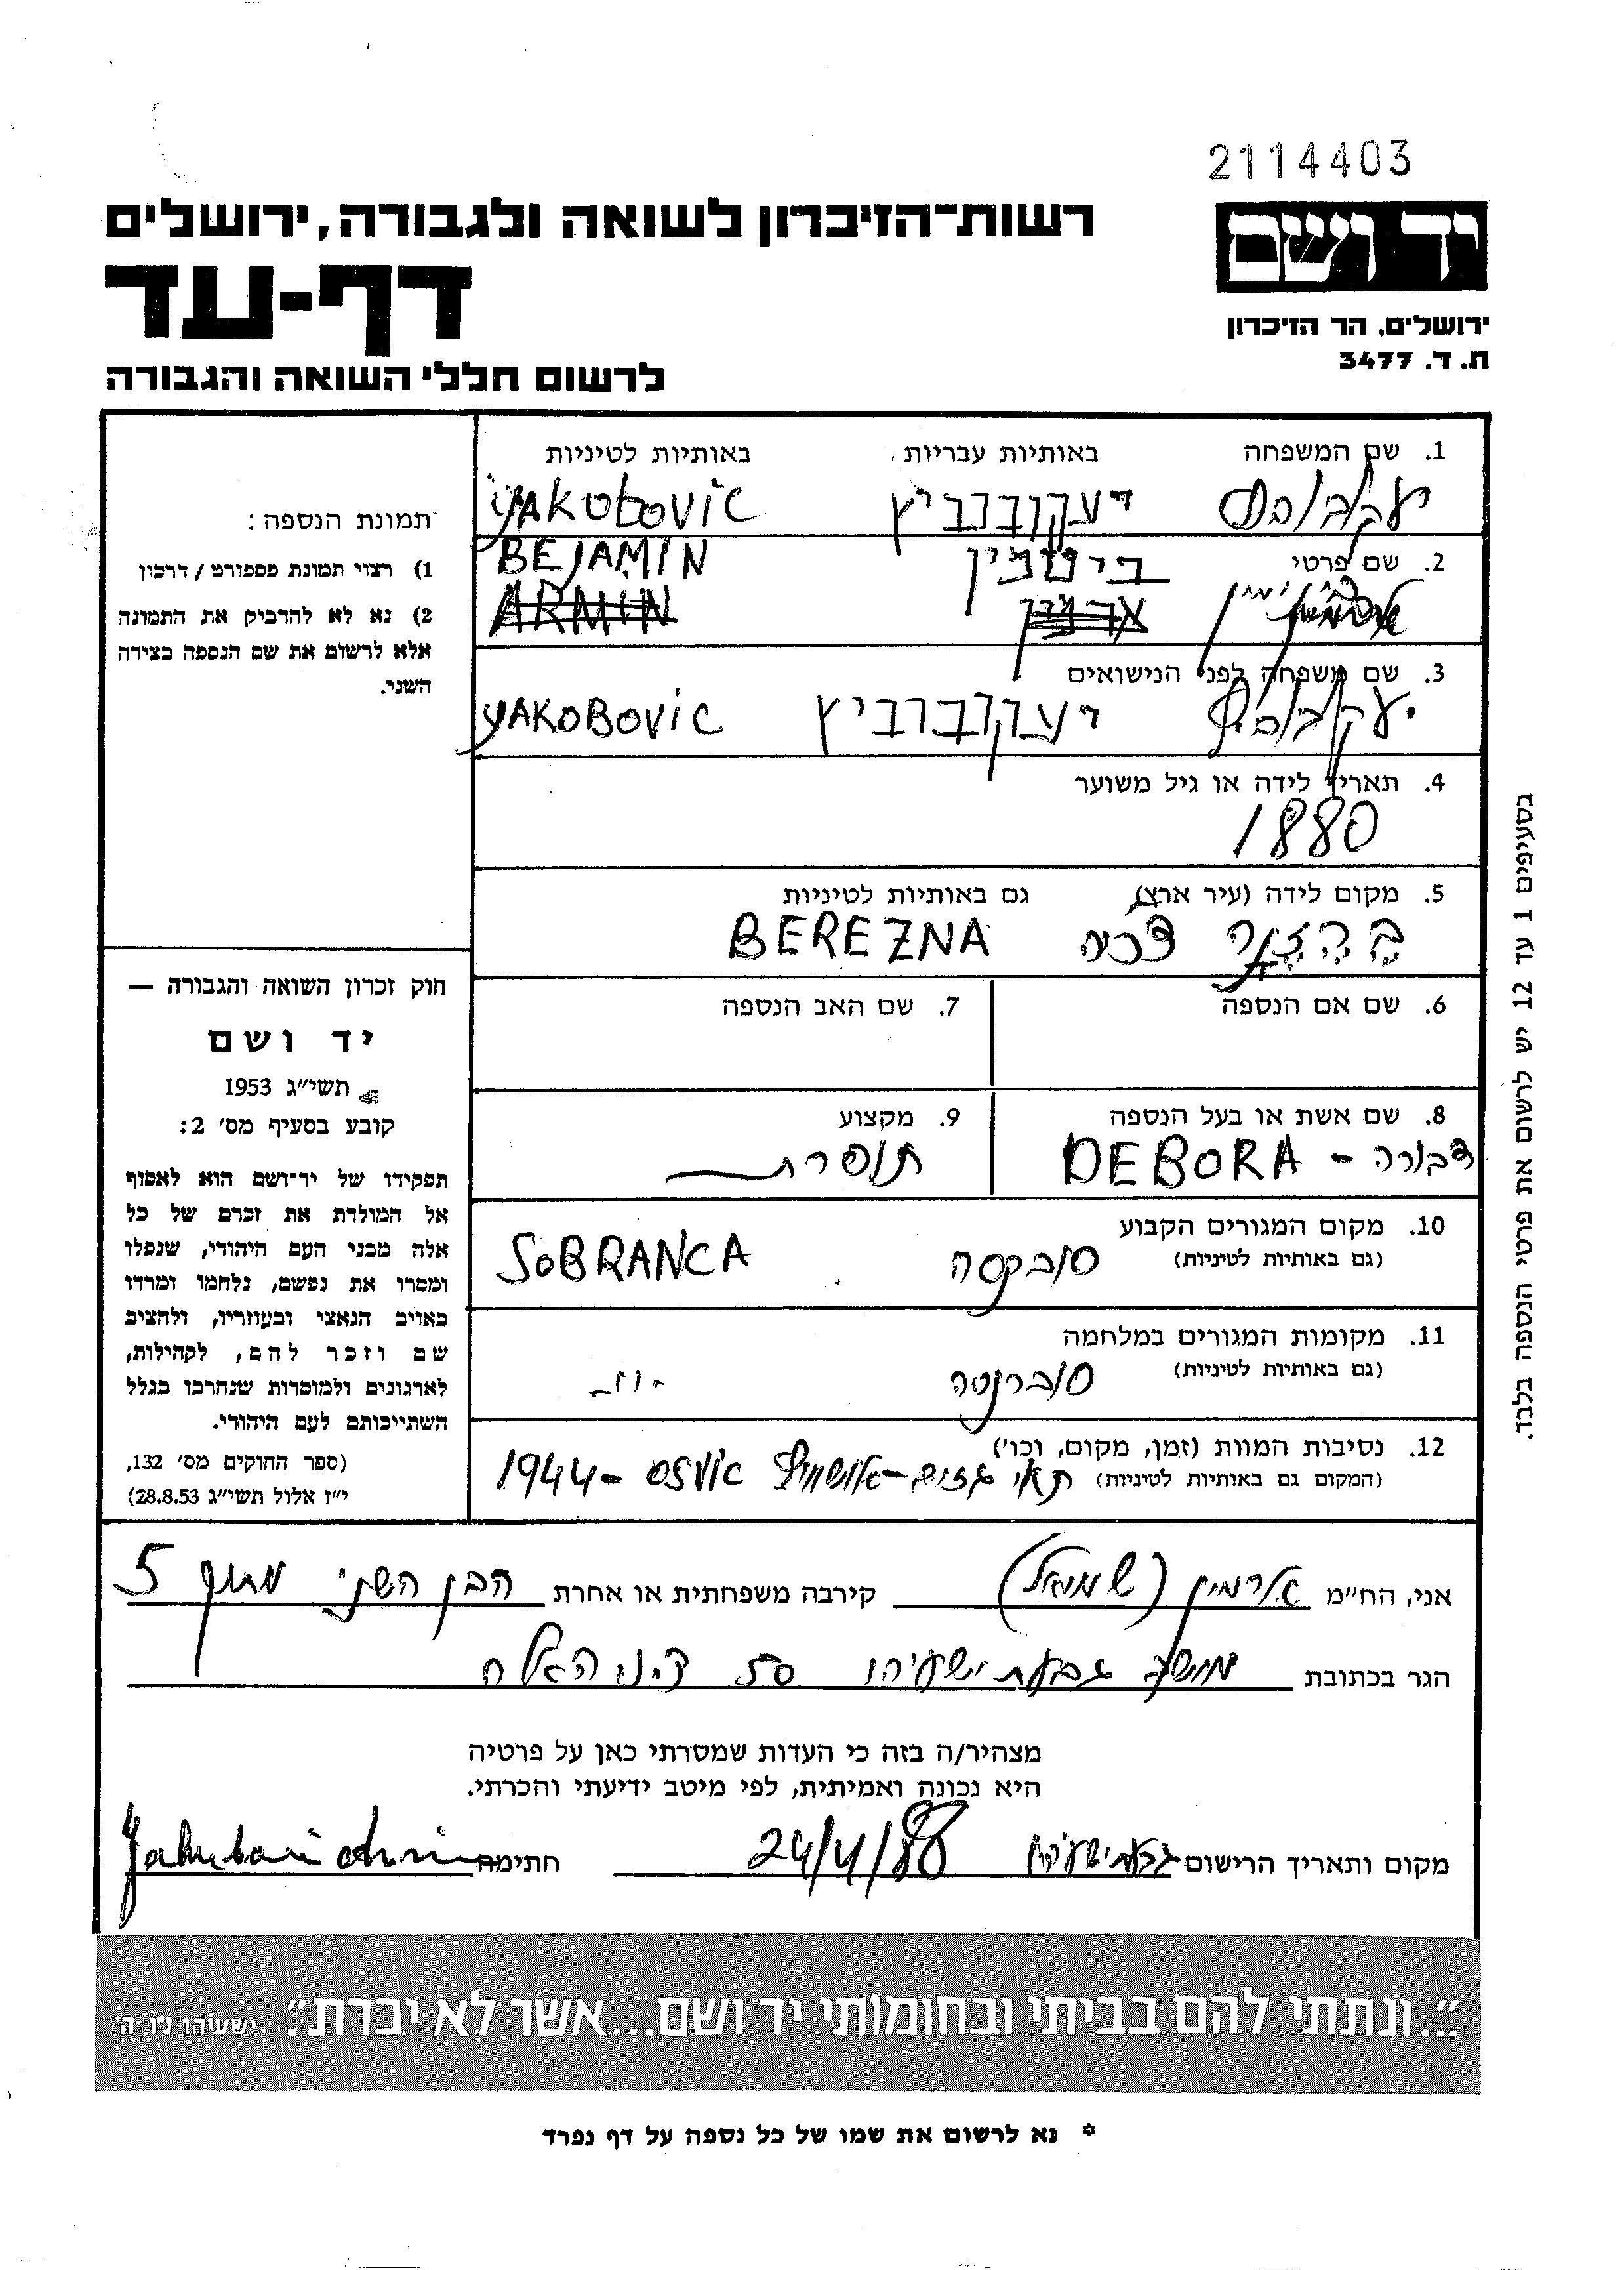 2114403
יד ושם
רשות-הזיכרון לשואה ולגבורה, ירושלים
דף-עד
ירושלים, הר הזיכרון
ת. ד. 3477
לרשום חללי השואה והגבורה
1. שם המשפחה באותיות עבריות באותיות לטיניות
יעקובוביץ YAKOBOVIC
2. שם פרטי
בנימין BEJAMIN
ארמין ARMIN
3. שם משפחה לפני הנישואים
יעקובוביץ YAKOBOVIC
4. תאריך לידה או גיל משוער
1880
5. מקום לידה (עיר ארץ) גם באותיות לטיניות
ברזנה BEREZNA
6. שם אם הנספה
7. שם האב הנספה
8. שם אשת או בעל הנספה
דבורה - DEBORA
9. מקצוע
תופרת
10. מקום המגורים הקבוע
(גם באותיות לטיניות)
SOBRANCA
11. מקומות המגורים במלחמה
(גם באותיות לטיניות)
סוברנצה
12. נסיבות המוות (זמן, מקום, וכו')
(המקום גם באותיות לטיניות) תאי גזים - אושוויץ 1944
תמונת הנספה:
1) רצוי תמונת פספורט / דרכון
2) נא לא להדביק את התמונה
אלא לרשום את שם הנספה בצידה
השני.
חוק זכרון השואה והגבורה —
יד ושם
תשי"ג 1953
קובע בסעיף מס' 2:
תפקידו של יד-ושם הוא לאסוף
אל המולדת את זכרם של כל
אלה מבני העם היהודי, שנפלו
ומסרו את נפשם, נלחמו ומרדו
באויב הנאצי ובעוזריו, ולהציב
שם וזכר להם, לקהילות,
לארגונים ולמוסדות שנחרבו בגלל
השתייכותם לעם היהודי.
(ספר החוקים מס' 132,
י"ז אלול תשי"ג 28.8.53)
בסעיפים 1 עד 12 יש לרשום את פרטי הנספה בלבד.
אני, הח"מ ארמין (שמואל) קירבה משפחתית או אחרת הבן השני מתוך 5
הגר בכתובת מושב גבעת ישעיהו 50 ד.נ. האלה
מצהיר/ה בזה כי העדות שמסרתי כאן על פרטיה
היא נכונה ואמיתית, לפי מיטב ידיעתי והכרתי.
מקום ותאריך הרישום גבעת ישעיהו 24/4/88 חתימה
"...ונתתי להם בביתי ובחומותי יד ושם...אשר לא יכרת". ישעיהו נ"ו, ה'
* נא לרשום את שמו של כל נספה על דף נפרד